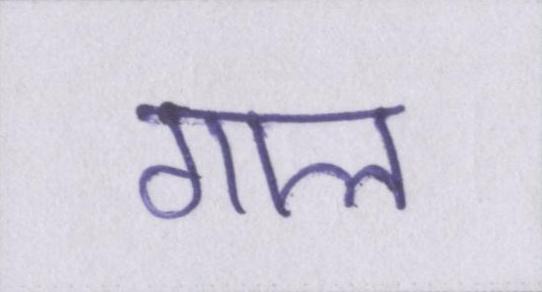 गाल